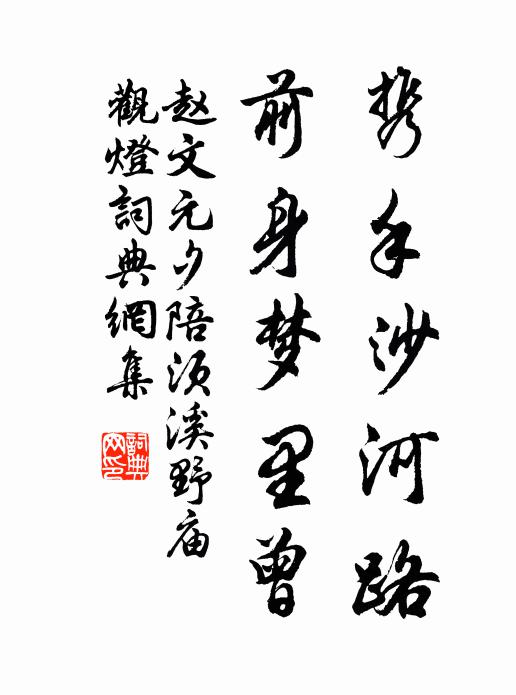 携手沙河路
前身梦里曾
赵文元夕陪须溪野庙
觀燈詞典網集
詞典网印